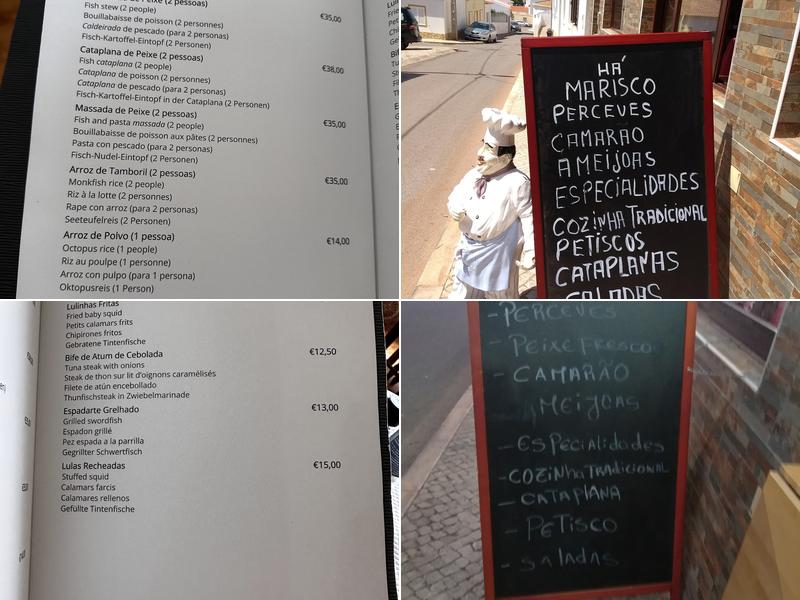 de Peixe (2 pessoas)
Fish stew (2 people)
Bouillabaisse de poisson (2 personnes)
Caldeirada de pescado (para 2 personas)
Fisch-Kartoffel-Eintopf (2 Personen)
€35,00
Cataplana de Peixe (2 pessoas)
Fish cataplana (2 people)
Cataplana de poisson (2 personnes)
Cataplana de pescado (para 2 personas)
Fisch-Kartoffel-Eintopf in der Cataplana (2 Personen)
€38,00
Massada de Peixe (2 pessoas)
Fish and pasta massada (2 people)
Bouillabaisse de poisson aux pâtes (2 personnes)
Pasta con pescado (para 2 personas)
Fisch-Nudel-Eintopf (2 Personen)
€35,00
Arroz de Tamboril (2 pessoas)
Monkfish rice (2 people)
Riz à la lotte (2 personnes)
Rape con arroz (para 2 personas)
Seeteufelreis (2 Personen)
€35,00
Arroz de Polvo (1 pessoa)
Octopus rice (1 people)
Riz au poulpe (1 personne)
Arroz con pulpo (para 1 persona)
Oktopusreis (1 Person)
€14,00
HÁ
MARISCO
PERCEVES
CAMARAO
AMEIJOAS
ESPECIALIDADES
COZINHA TRADICIONAL
PETISCOS
CATAPLANAS
SALADAS
Lulinhas Fritas
Fried baby squid
Petits calamars frits
Chipirones fritos
Gebratene Tintenfische
Bife de Atum de Cebolada
Tuna steak with onions
Steak de thon sur lit d'oignons caramélisés
Filete de atún encebollado
Thunfischsteak in Zwiebelmarinade
€12,50
Espadarte Grelhado
Grilled swordfish
Espadon grillé
Pez espada a la parrilla
Gegrillter Schwertfisch
€13,00
Lulas Recheadas
Stuffed squid
Calamars farcis
Calamares rellenos
Gefüllte Tintenfische
€15,00
- PERCEVES
- PEIXE FRESCO
- CAMARÃO
AMEIJOAS
- ESPECIALIDADES
- COZINHA TRADICIONAL
- CATAPLANA
- PETISCO
- SALADAS